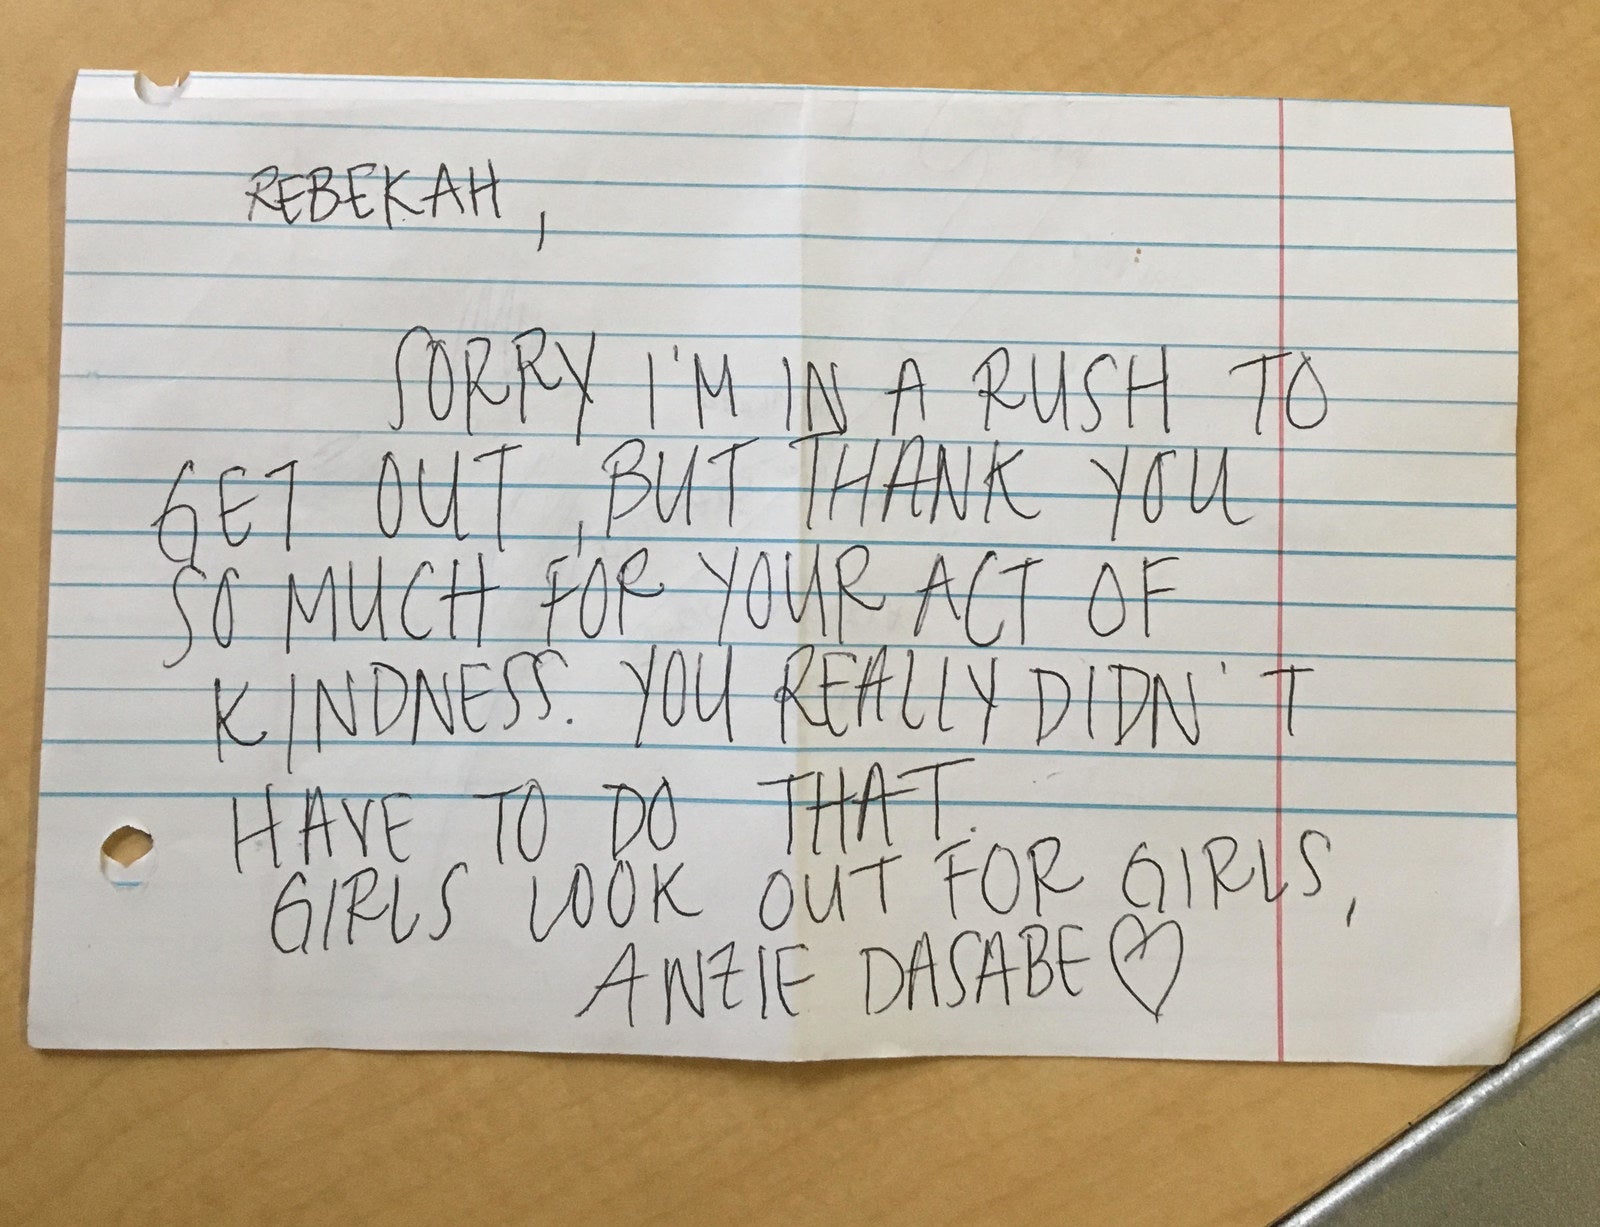 REBEKAH,
SORRY I'M IN A RUSH TO
GET OUT, BUT THANK YOU
SO MUCH FOR YOUR ACT OF
KINDNESS. YOU REALLY DIDN'T
HAVE TO DO THAT.
GIRLS LOOK OUT FOR GIRLS,
ANZIE DASABE♡